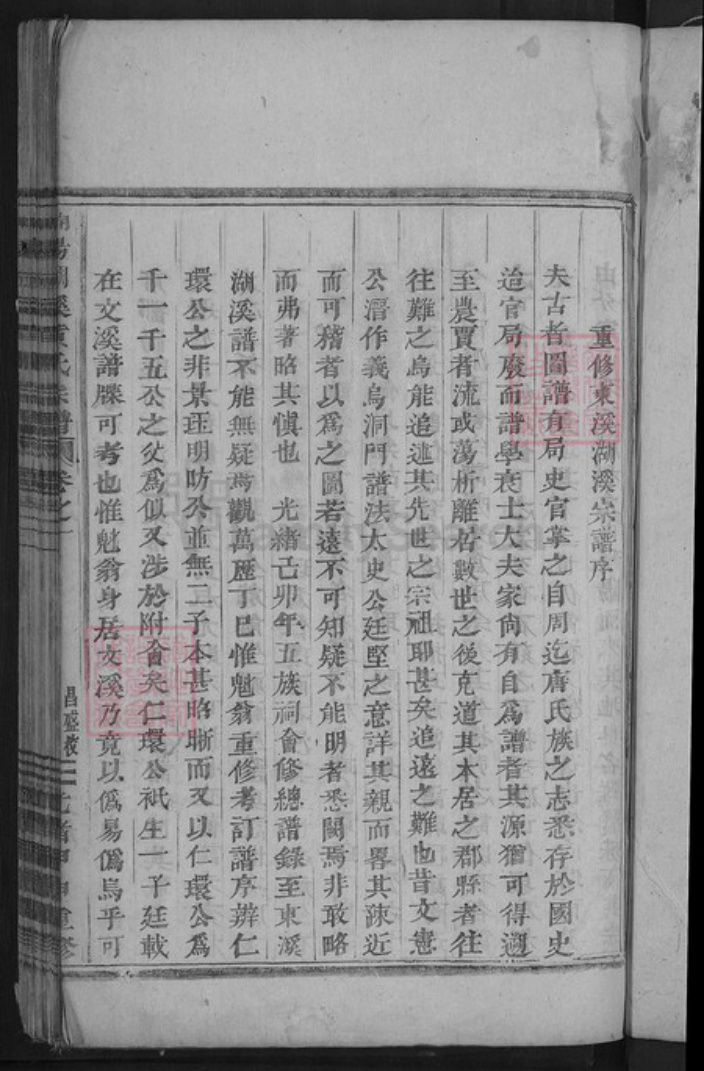 重修東溪湖溪宗譜序
夫古者圖譜有局史官掌之自周迄唐氏族之志悉存於國史
迨官局廢而譜學衰士大夫家尙有自爲譜者其源猶可得遡
至農賈者流或蕩析離居數世之後克道其本居之郡縣者往
往難之烏能追述其先世之宗祖耶甚矣追遠之難也昔文憲
公濳作義烏洞門譜法太史公廷堅之意詳其親而畧其疎近
而可稽者以爲之圖若遠不可知疑不能明者悉闕焉非敢略
而弗著略其愼也 光緒己卯年五族祠會修總譜錄至東溪
湖溪譜不能無疑焉觀萬歷丁巳惟魁翁重修考訂譜序辨仁
環公之非景珪明昉公並無二子本甚昭晰而又以仁環公爲
千一千五公之父爲似又涉於附會矣仁環公祇生一子廷載
在文溪譜牒可考也惟魁翁身居文溪乃竟以僞易僞烏乎可
湖溪黃氏宗譜 卷之一
昌盛敬 七 甲申重修